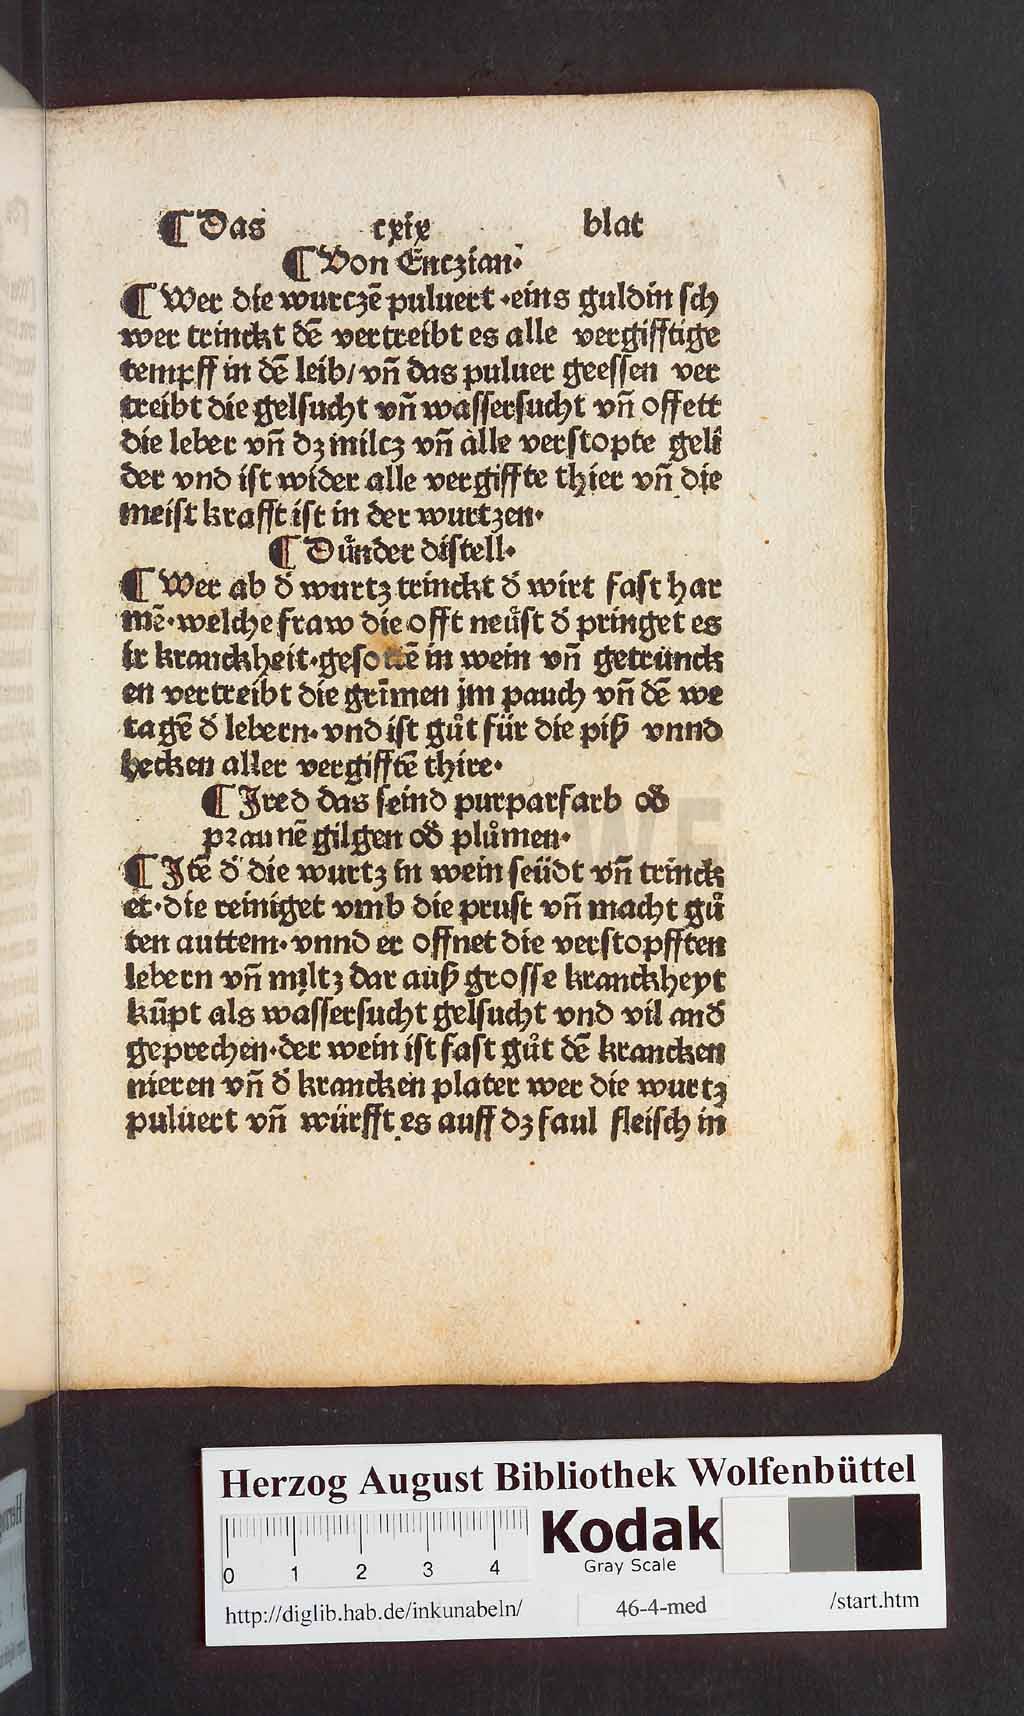 ¶ Das cxix blat
¶ Von Enczian·
¶ Wer die wurczē puluert ·eins guldin sch
wer trinckt dē vertreibt es alle vergifftige
tempff in dē leib/ vn̄ das puluer geessen ver
treibt die gelsucht vn̄ wassersucht vn̄ offett
die leber vn̄ dz milcz vn̄ alle verstopte geli
der vnd ist wider alle vergiffte thier vn̄ die
meist krafft ist in der wurtzen·
¶ Du̇nder distell·
¶ Wer ab d̓ wurtz trinckt d̓ wirt fast har
mē·welche fraw die offt neu̇st d̓ pringet es
ir kranckheit·gesottē in wein vn̄ getrunck
en vertreibt die grīmen jm pauch vn̄ dē we
tagē d̓ lebern· vnd ist gůt für die piß vnnd
hecken aller vergifftē thire·
¶ Jred das seind purparfarb od̓
praunē gilgen od̓ plůmen·
¶ Jtē d̓ die wurtz in wein seüdt vn̄ trinck
et·die reiniget vmb die prust vn̄ macht gů
ten auttem· vnnd er offnet die verstopfften
lebern vn̄ miltz dar auß grosse kranckheyt
kūpt als wassersucht gelsucht vnd vil and̓
geprechen·der wein ist fast gůt dē krancken
nieren vn̄ d̓ krancken plater wer die wurtz
puluert vn̄ würfft es auff dz faul fleisch in
Herzog August Bibliothek Wolfenbüttel
0 1 2 3 4
Kodak
Gray Scale
http://diglib.hab.de/inkunabeln/ 46-4-med /start.htm